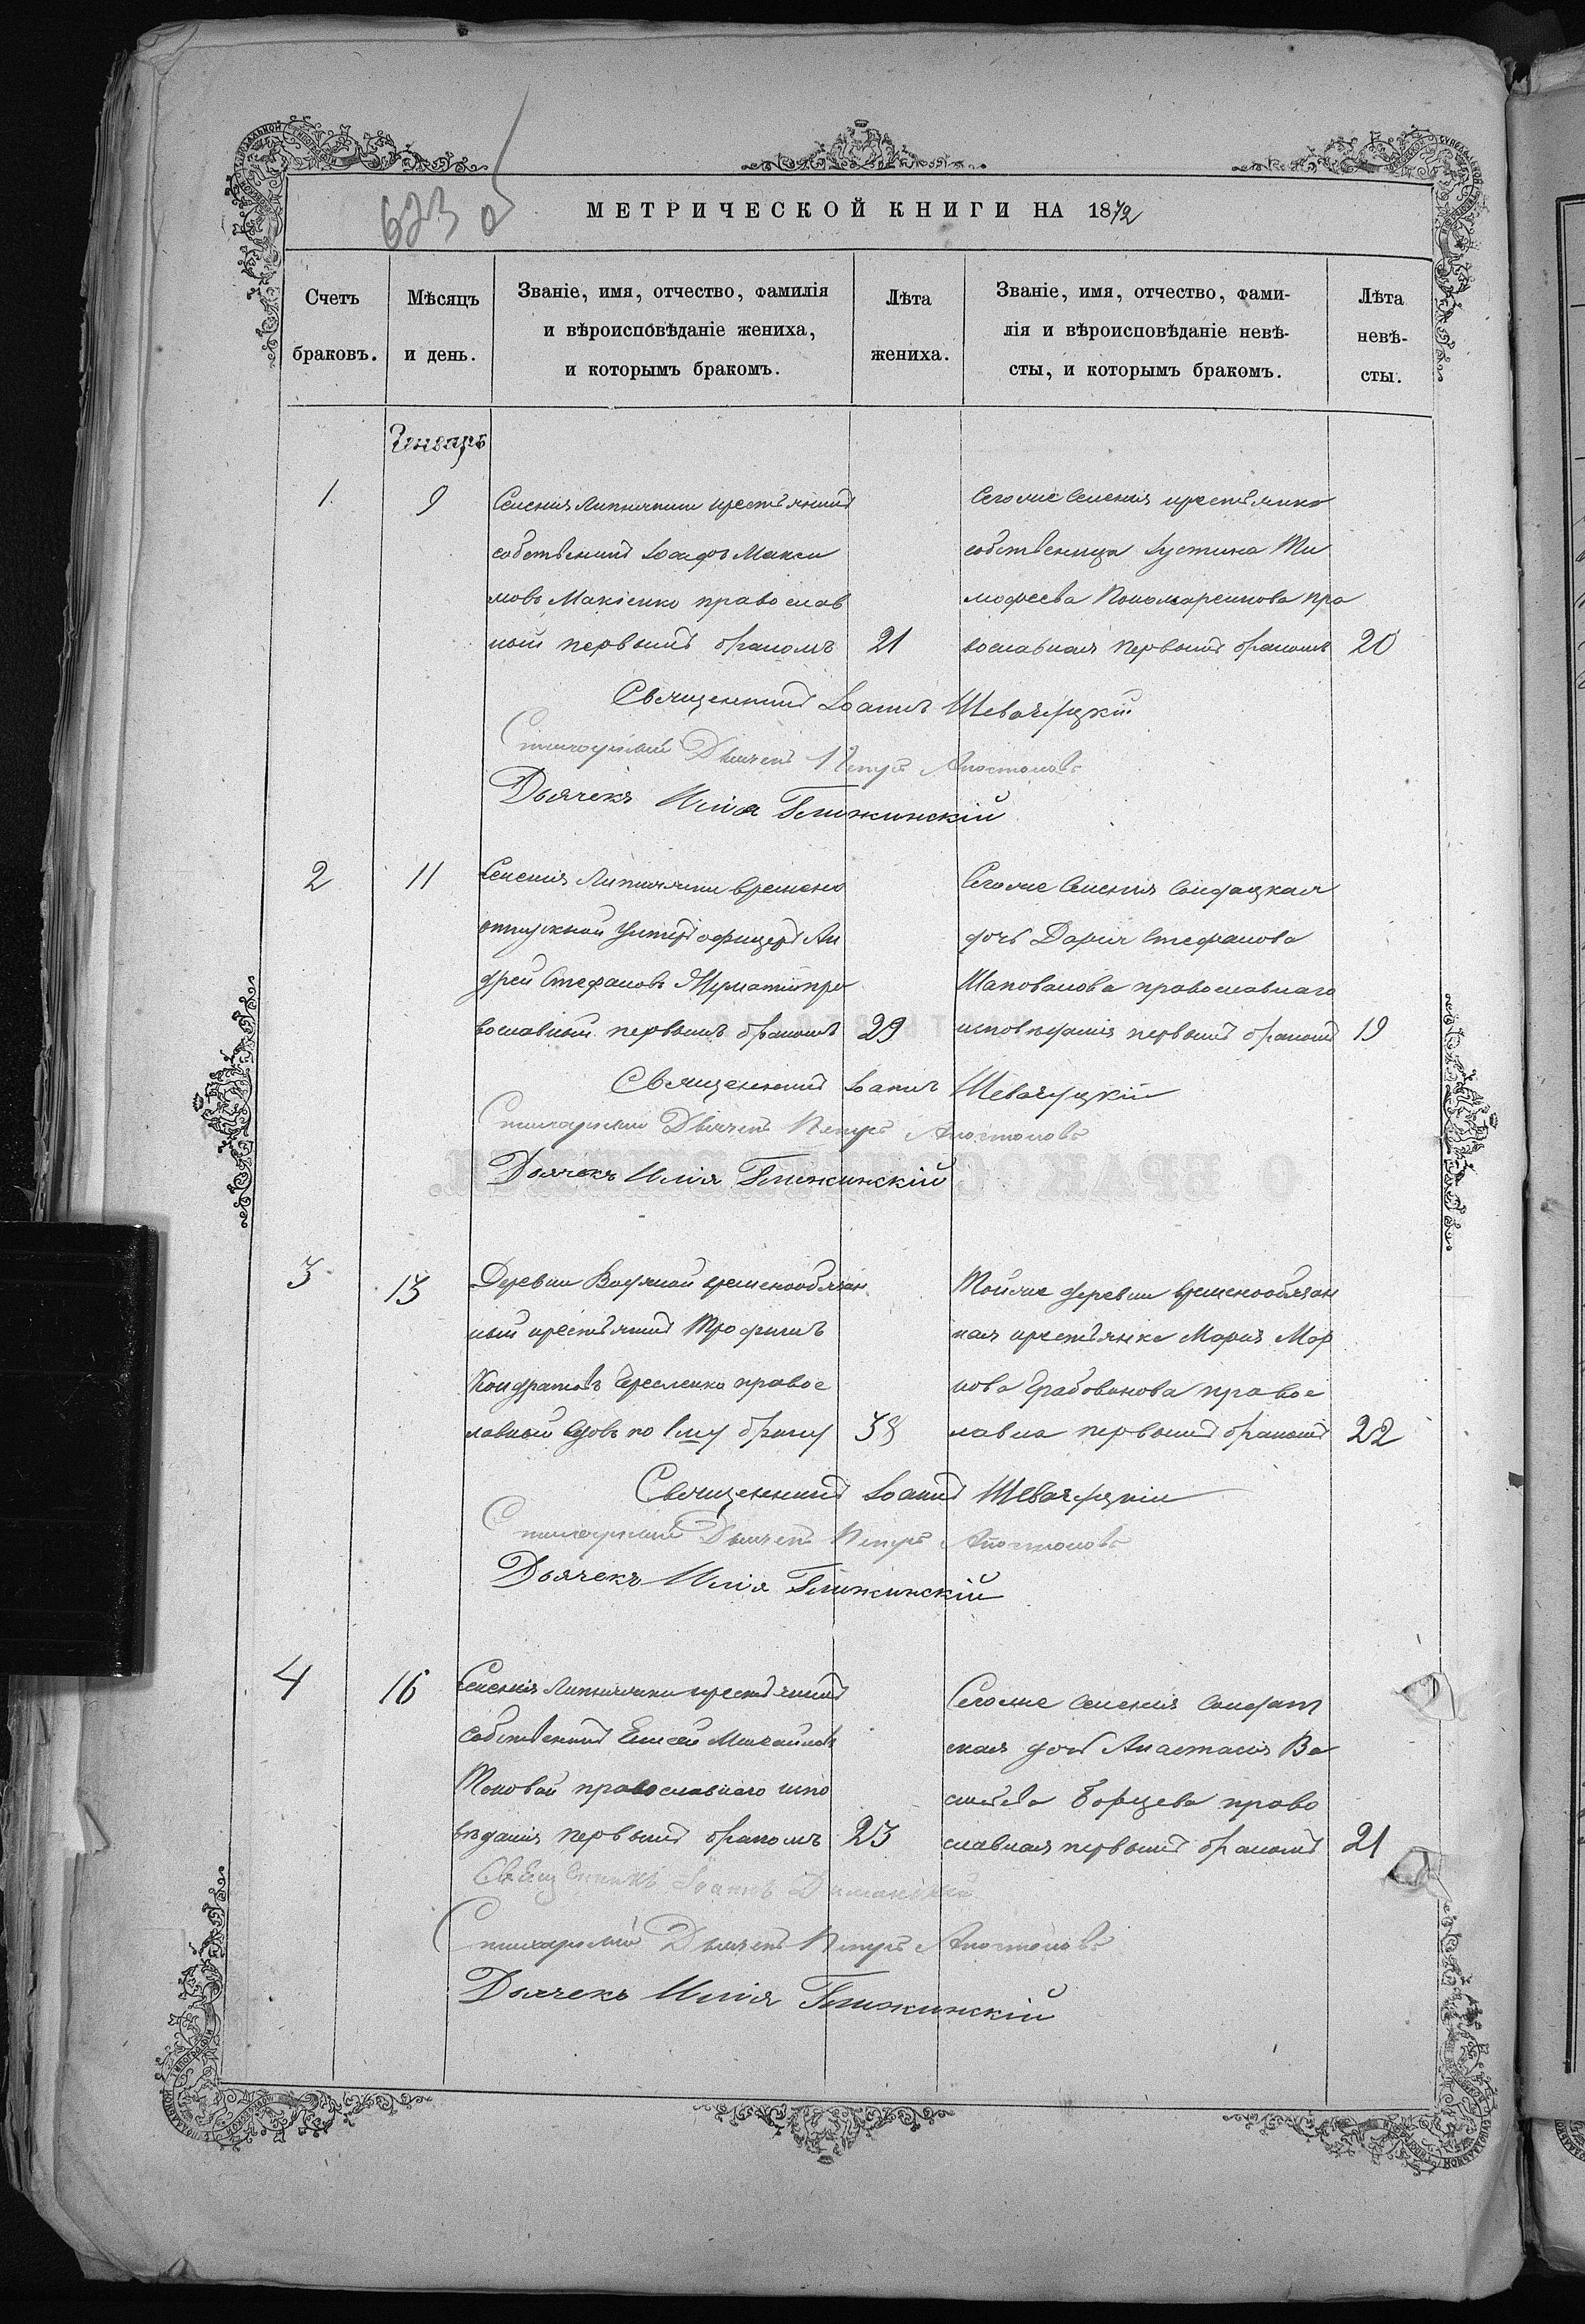 623 об
МЕТРИЧЕСКОЙ КНИГИ НА 1872
Счетъ браковъ.
Мѣсяцъ и день.
Званіе, имя, отчество, фамилія
и вѣроисповѣданіе жениха,
и которымъ бракомъ.
Лѣта жениха.
Званіе, имя, отчество, фами-
лія и вѣроисповѣданіе невѣ-
сты, и которымъ бракомъ.
Лѣта невѣ-
сты.
Генварь
1. 9
Селенія Липнячки крестьянинъ
собственникъ Іосифъ Макси
мовъ православ
ный первымъ бракомъ 21
Тогоже селенія крестьянка
собственница Іустина Ти
мофеева Пономаренкова пра
вославная первымъ бракомъ 20
Священникъ Іоаннъ
Стихарный Дьячекъ Петръ Апостоловъ
Дьячекъ Илія
2 11
Селенія Липнячки временно
отпускной Унтеръ офицеръ Ан
дрей Стефановъ пра
вославный первымъ бракомъ 29
Тогоже селенія солдатская
дочь Дарія Стефанова
Шаповалова православнаго
исповѣданія первымъ бракомъ 19
Священникъ Іоаннъ
Стихарный Дьячекъ Петръ Апостоловъ
Дьячекъ Илія
3 13
Деревни Водяной временнообязан
ный крестьянинъ Трофимъ
Кондратовъ правос
лавный вдовъ по 1му браку 38
Тойже деревни временнообязан
ная крестьянка Марія Мар
кова Грабованова правос
лавна первымъ бракомъ 22
Священникъ Іоаннъ
Стихарный Дьячекъ Петръ Апостоловъ
Дьячекъ Илія
4 16
Селенія Липнячки крестьянинъ
собственникъ Елисей Михайловъ
православнаго испо
вѣданія первымъ бракомъ 23
Тогоже селенія солдат
ская дочь Анастасія Ва
сильева право
славная первымъ бракомъ 21
Священникъ Іоаннъ
Стихарный Дьячекъ Петръ Апостоловъ
Дьячекъ Илія